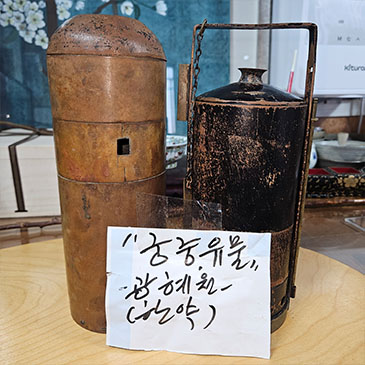 "궁중유물"
-광혜원-
(한약)
kitura